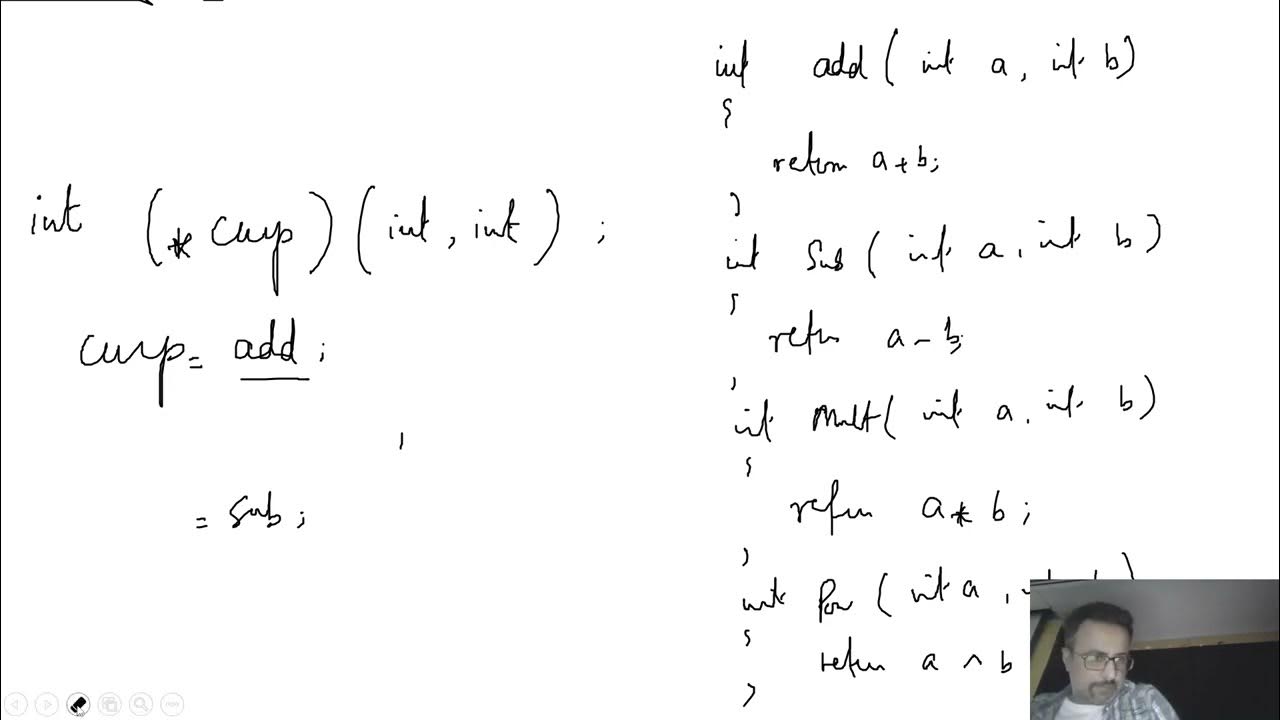 int (* curp) (int, int) ;
curp = add ;
= Sub ;
int add ( int a, int b)
{
return a + b;
}
int Sub ( int a, int b )
{
return a - b;
}
int Mult( int a, int b )
{
return a * b ;
}
int Pow ( int a ,
{
return a ^ b
}